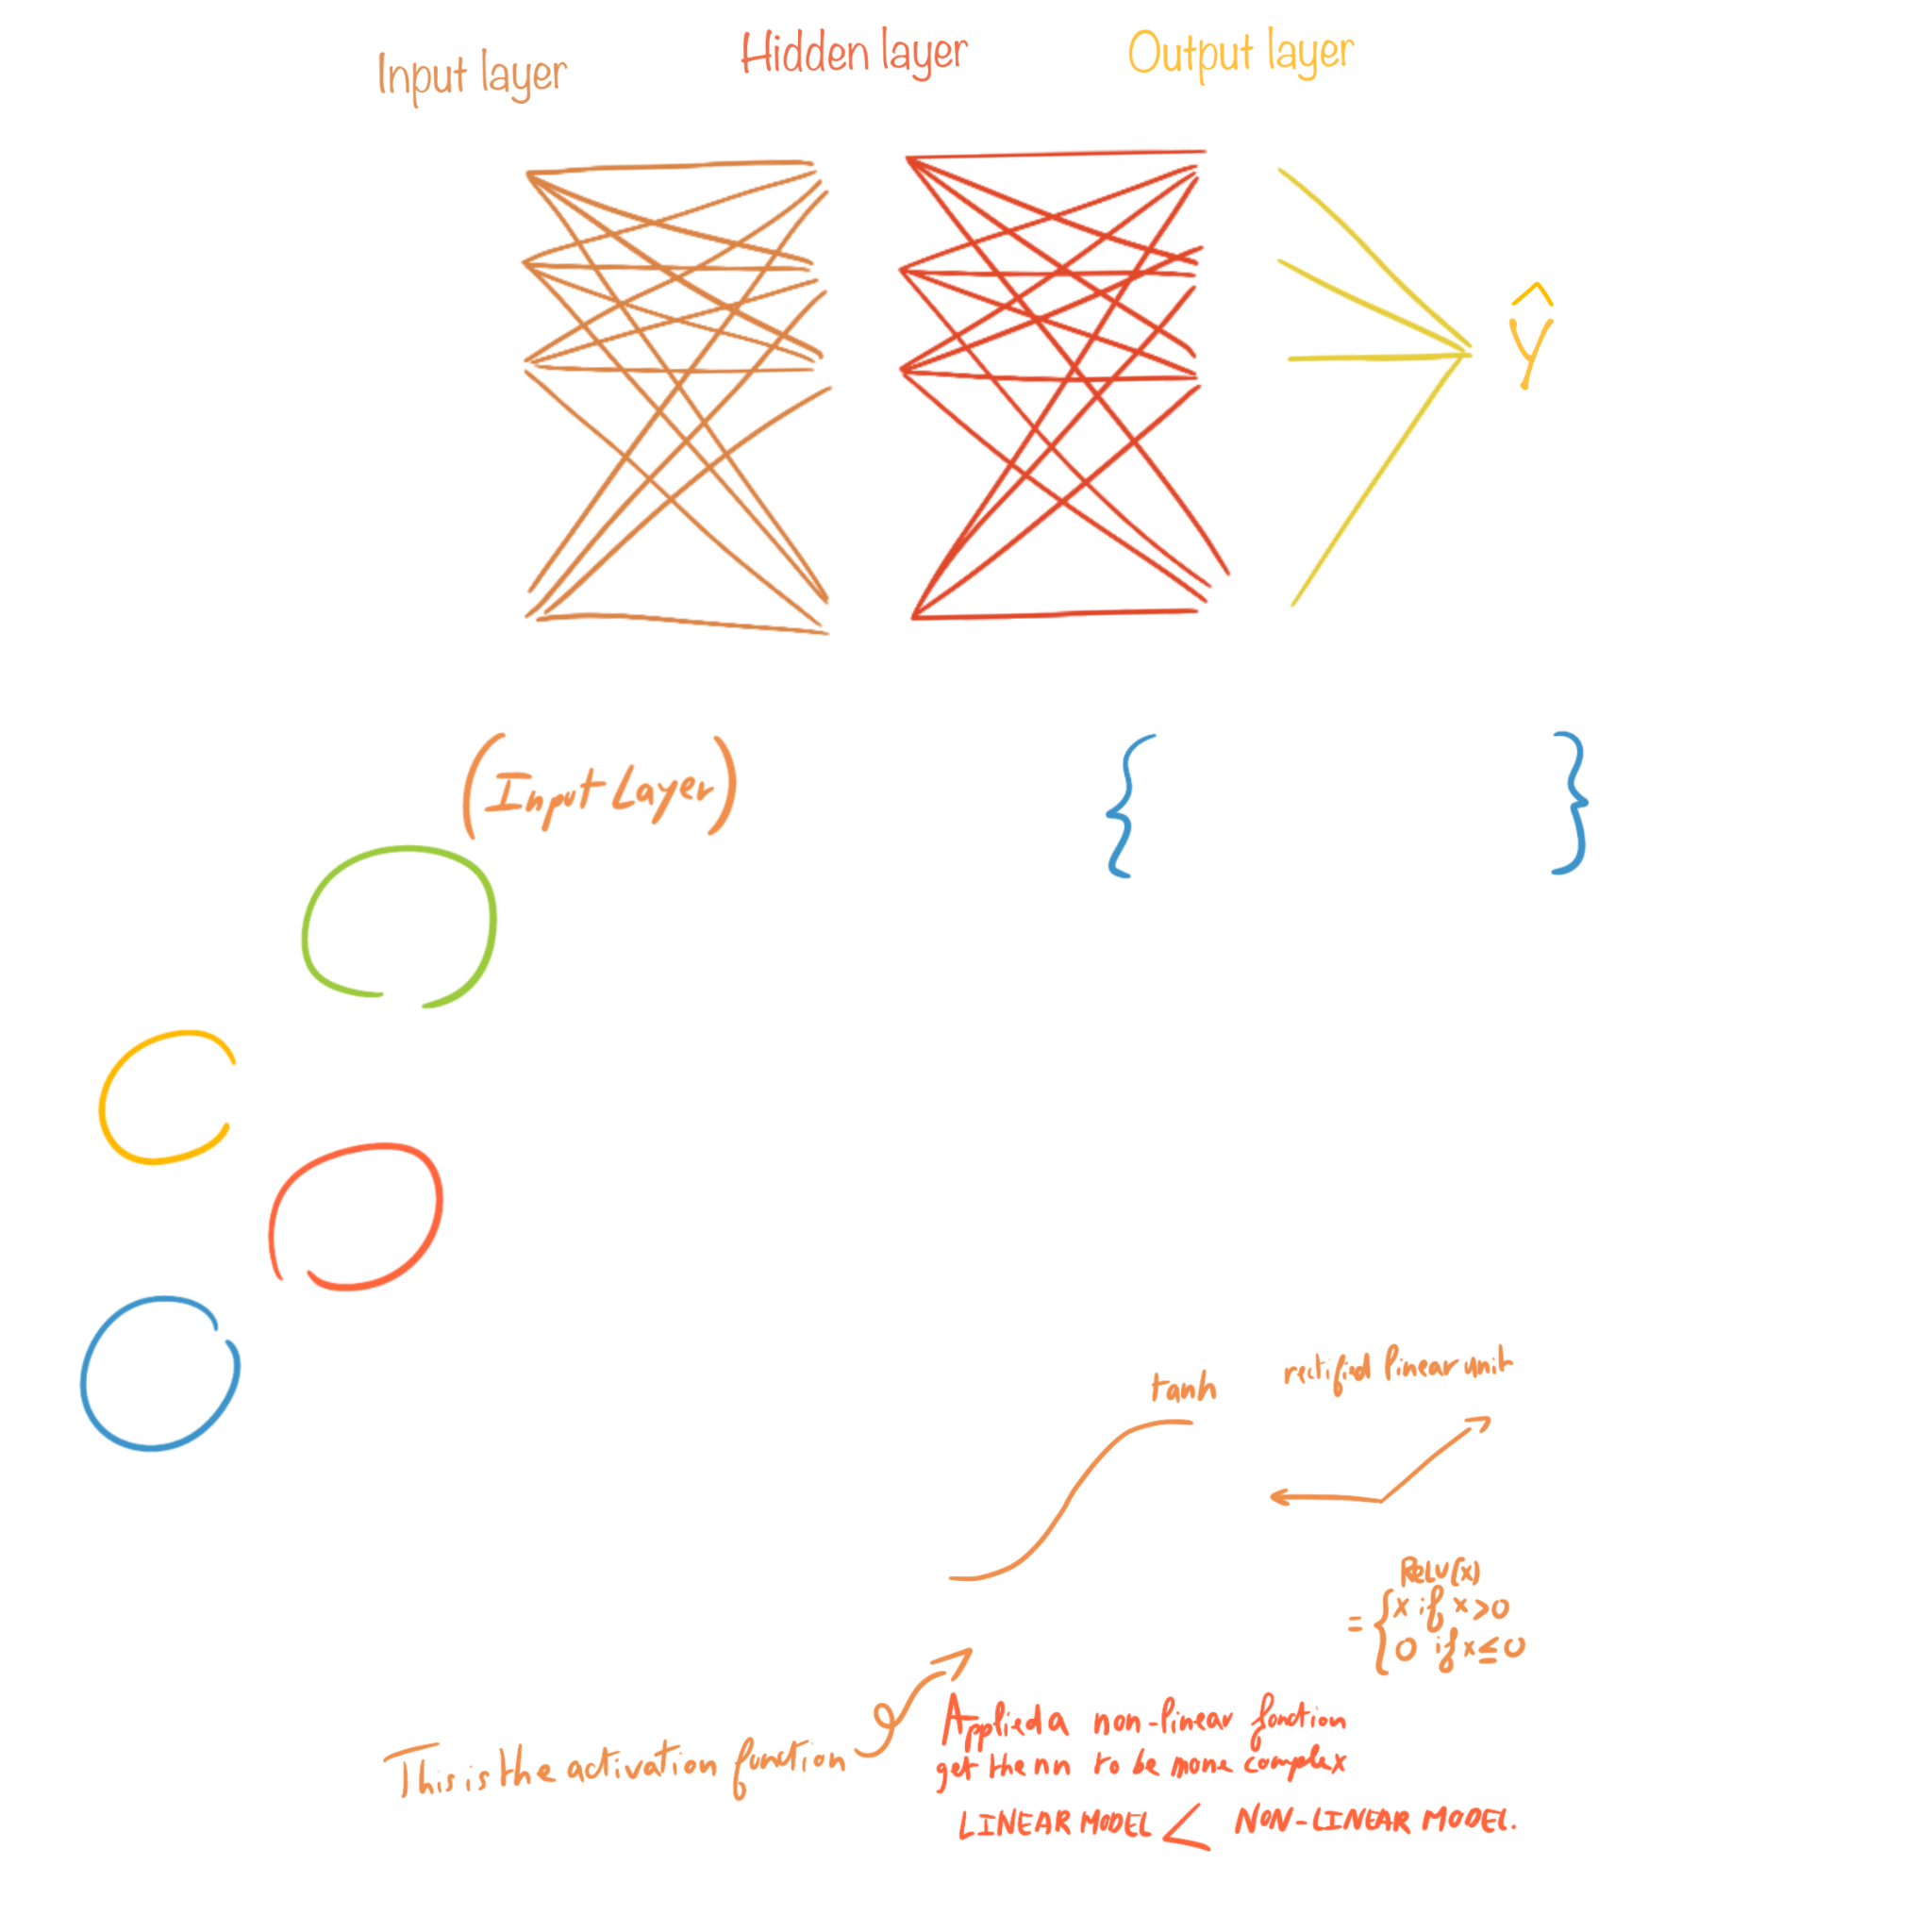 Input layer
Hidden layer
Output layer
Ŷ
(Input Layer)
{ }
tanh
rectified linear unit
ReLU(x)
= { x if x > 0
0 if x ≤ 0
This is the activation function
Applied a non-linear function
get the nn to be more complex
LINEAR MODEL < NON-LINEAR MODEL.